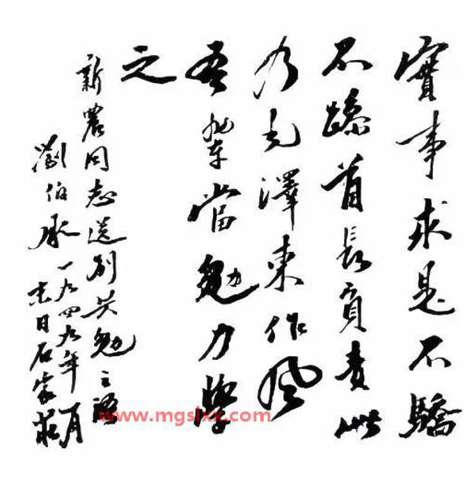 實事求是不驕
不躁首長負責此
乃毛澤東作風
吾輩當勉力學
之
新農同志送別共勉之語
劉伯承一九四九年一月
十日石家莊
www.mgslxx.com